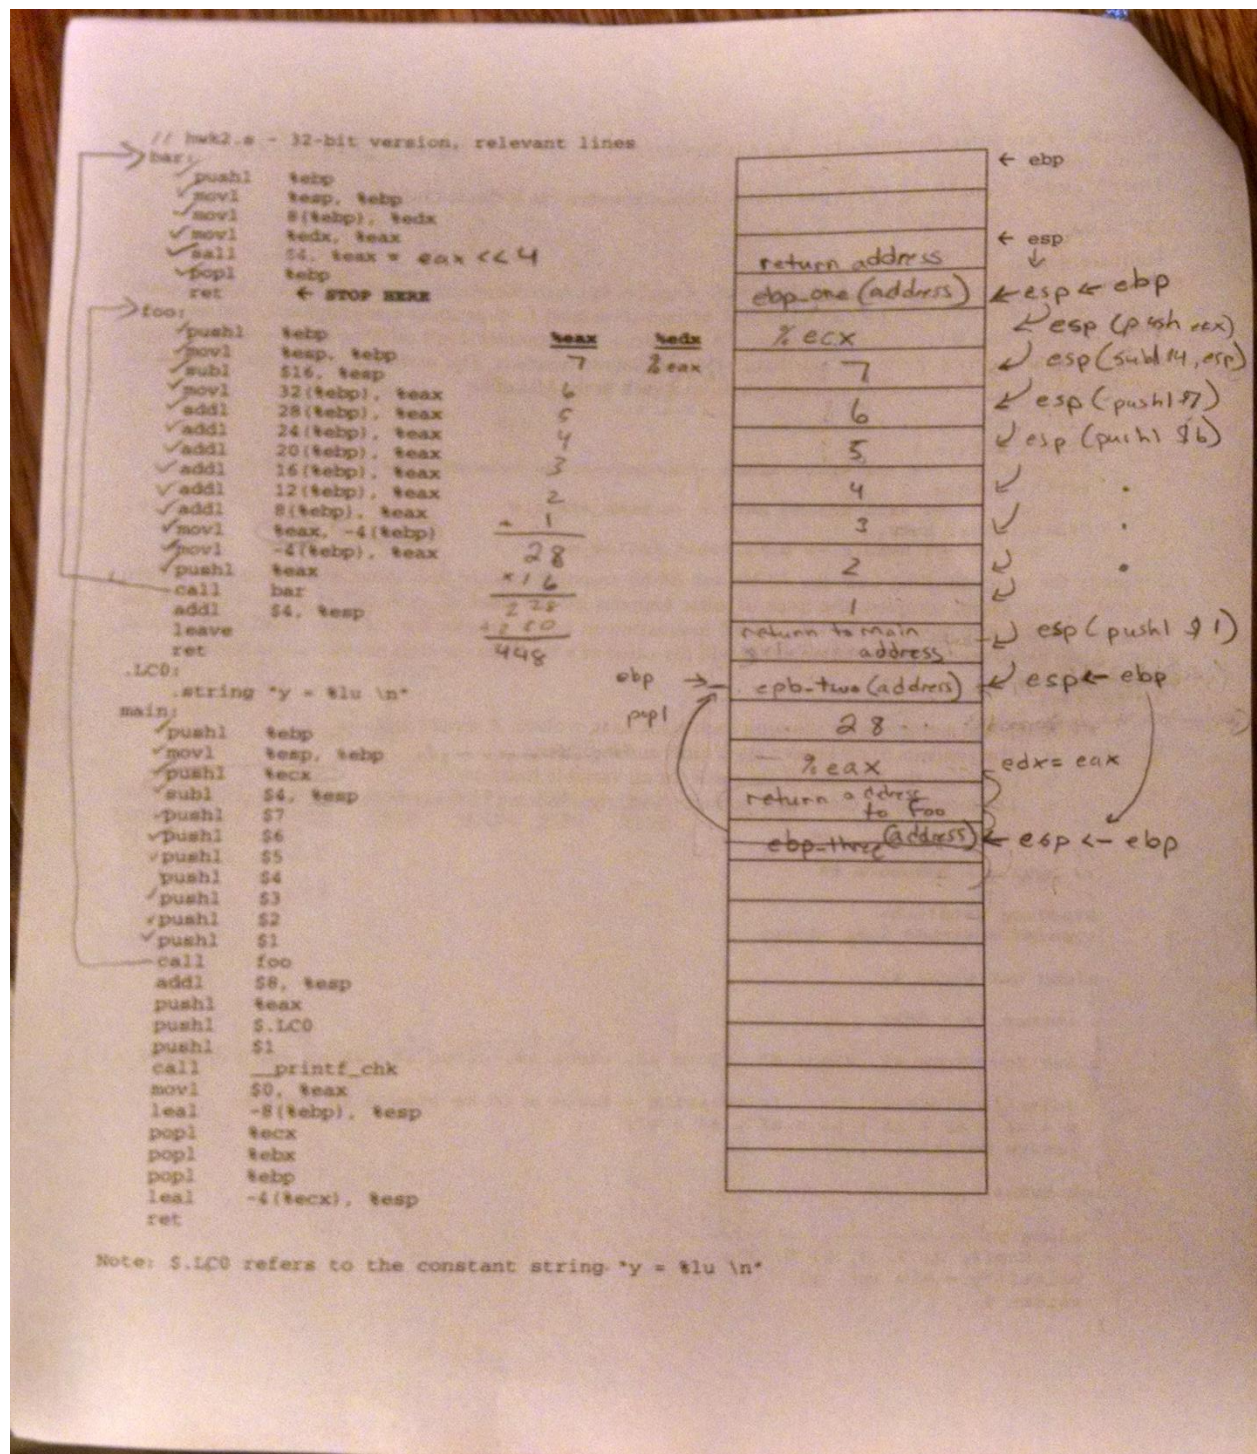 // hwk2.s - 32-bit version, relevant lines
bar:
pushl %ebp
movl %esp, %ebp
movl 8(%ebp), %edx
movl %edx, %eax
sall $4, %eax = eax << 4
popl %ebp
ret ← STOP HERE
foo:
pushl %ebp
movl %esp, %ebp
subl $16, %esp
movl 32(%ebp), %eax
addl 28(%ebp), %eax
addl 24(%ebp), %eax
addl 20(%ebp), %eax
addl 16(%ebp), %eax
addl 12(%ebp), %eax
addl 8(%ebp), %eax
movl %eax, -4(%ebp)
movl -4(%ebp), %eax
pushl %eax
call bar
addl $4, %esp
leave
ret
.LC0:
.string "y = %lu \n"
main:
pushl %ebp
movl %esp, %ebp
pushl %ecx
subl $4, %esp
pushl $7
pushl $6
pushl $5
pushl $4
pushl $3
pushl $2
pushl $1
call foo
addl $8, %esp
pushl %eax
pushl $.LC0
pushl $1
call __printf_chk
movl $0, %eax
leal -8(%ebp), %esp
popl %ecx
popl %ebx
popl %ebp
leal -4(%ecx), %esp
ret
Note: $.LC0 refers to the constant string "y = %lu \n"
%eax %edx
7 %eax
6
5
4
3
2
+ 1
28
×16
+280
448
← ebp
← esp
return address
ebp_one (address) ← esp ← ebp
% ecx esp (push ecx)
7 esp (subl $4, esp)
6 esp (pushl $7)
5 esp (pushl $6)
4 .
3 .
2 .
1
return to main
address esp (pushl $1)
ebp → epb-two (address) esp ← ebp
popl
28
% eax edx = eax
return address
to foo
ebp-three (address) ← esp <- ebp